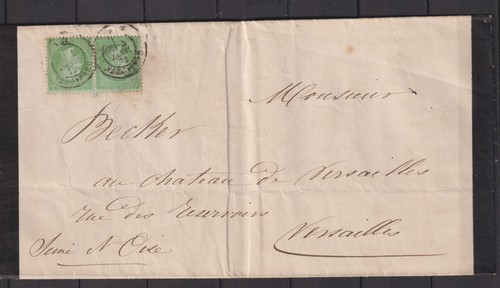 Monsieur
Becker
au chateau de Versailles
rue des Reservoirs
Versailles
Seine et Oise